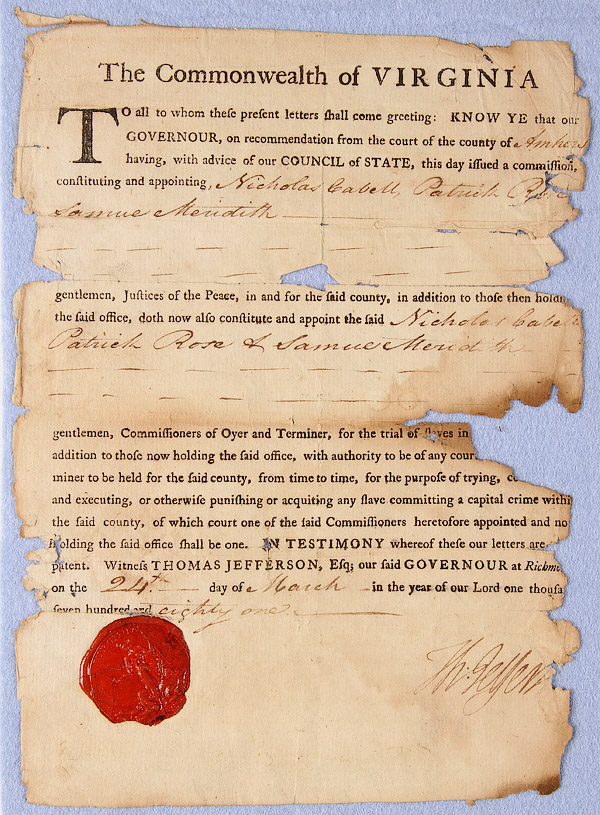 The Commonwealth of VIRGINIA
TO all to whom theſe preſent letters ſhall come greeting: KNOW YE that our
GOVERNOUR, on recommendation from the court of the county of Amhers
having, with advice of our COUNCIL of STATE, this day iſſued a commiſſion,
conſtituting and appointing, Nicholas Cabell, Patrick Rose
Samue Meridith
gentlemen, Juſtices of the Peace, in and for the ſaid county, in addition to thoſe then holdin
the ſaid office, doth now alſo conſtitute and appoint the ſaid Nicholas Cabell
Patrick Rose & Samue Meridith
gentlemen, Commiſſioners of Oyer and Terminer, for the trial of ſlaves in
addition to thoſe now holding the ſaid office, with authority to be of any cour
miner to be held for the ſaid county, from time to time, for the purpoſe of trying,
and executing, or otherwiſe puniſhing or acquiting any ſlave committing a capital crime withi
the ſaid county, of which court one of the ſaid Commiſſioners heretofore appointed and no
holding the ſaid office ſhall be one. IN TESTIMONY whereof theſe our letters are
patent. Witneſs THOMAS JEFFERSON, Eſq; our ſaid GOVERNOUR at Richm
on the 24th day of March in the year of our Lord one thouſa
ſeven hundred and eighty one.
Th: Jeffer